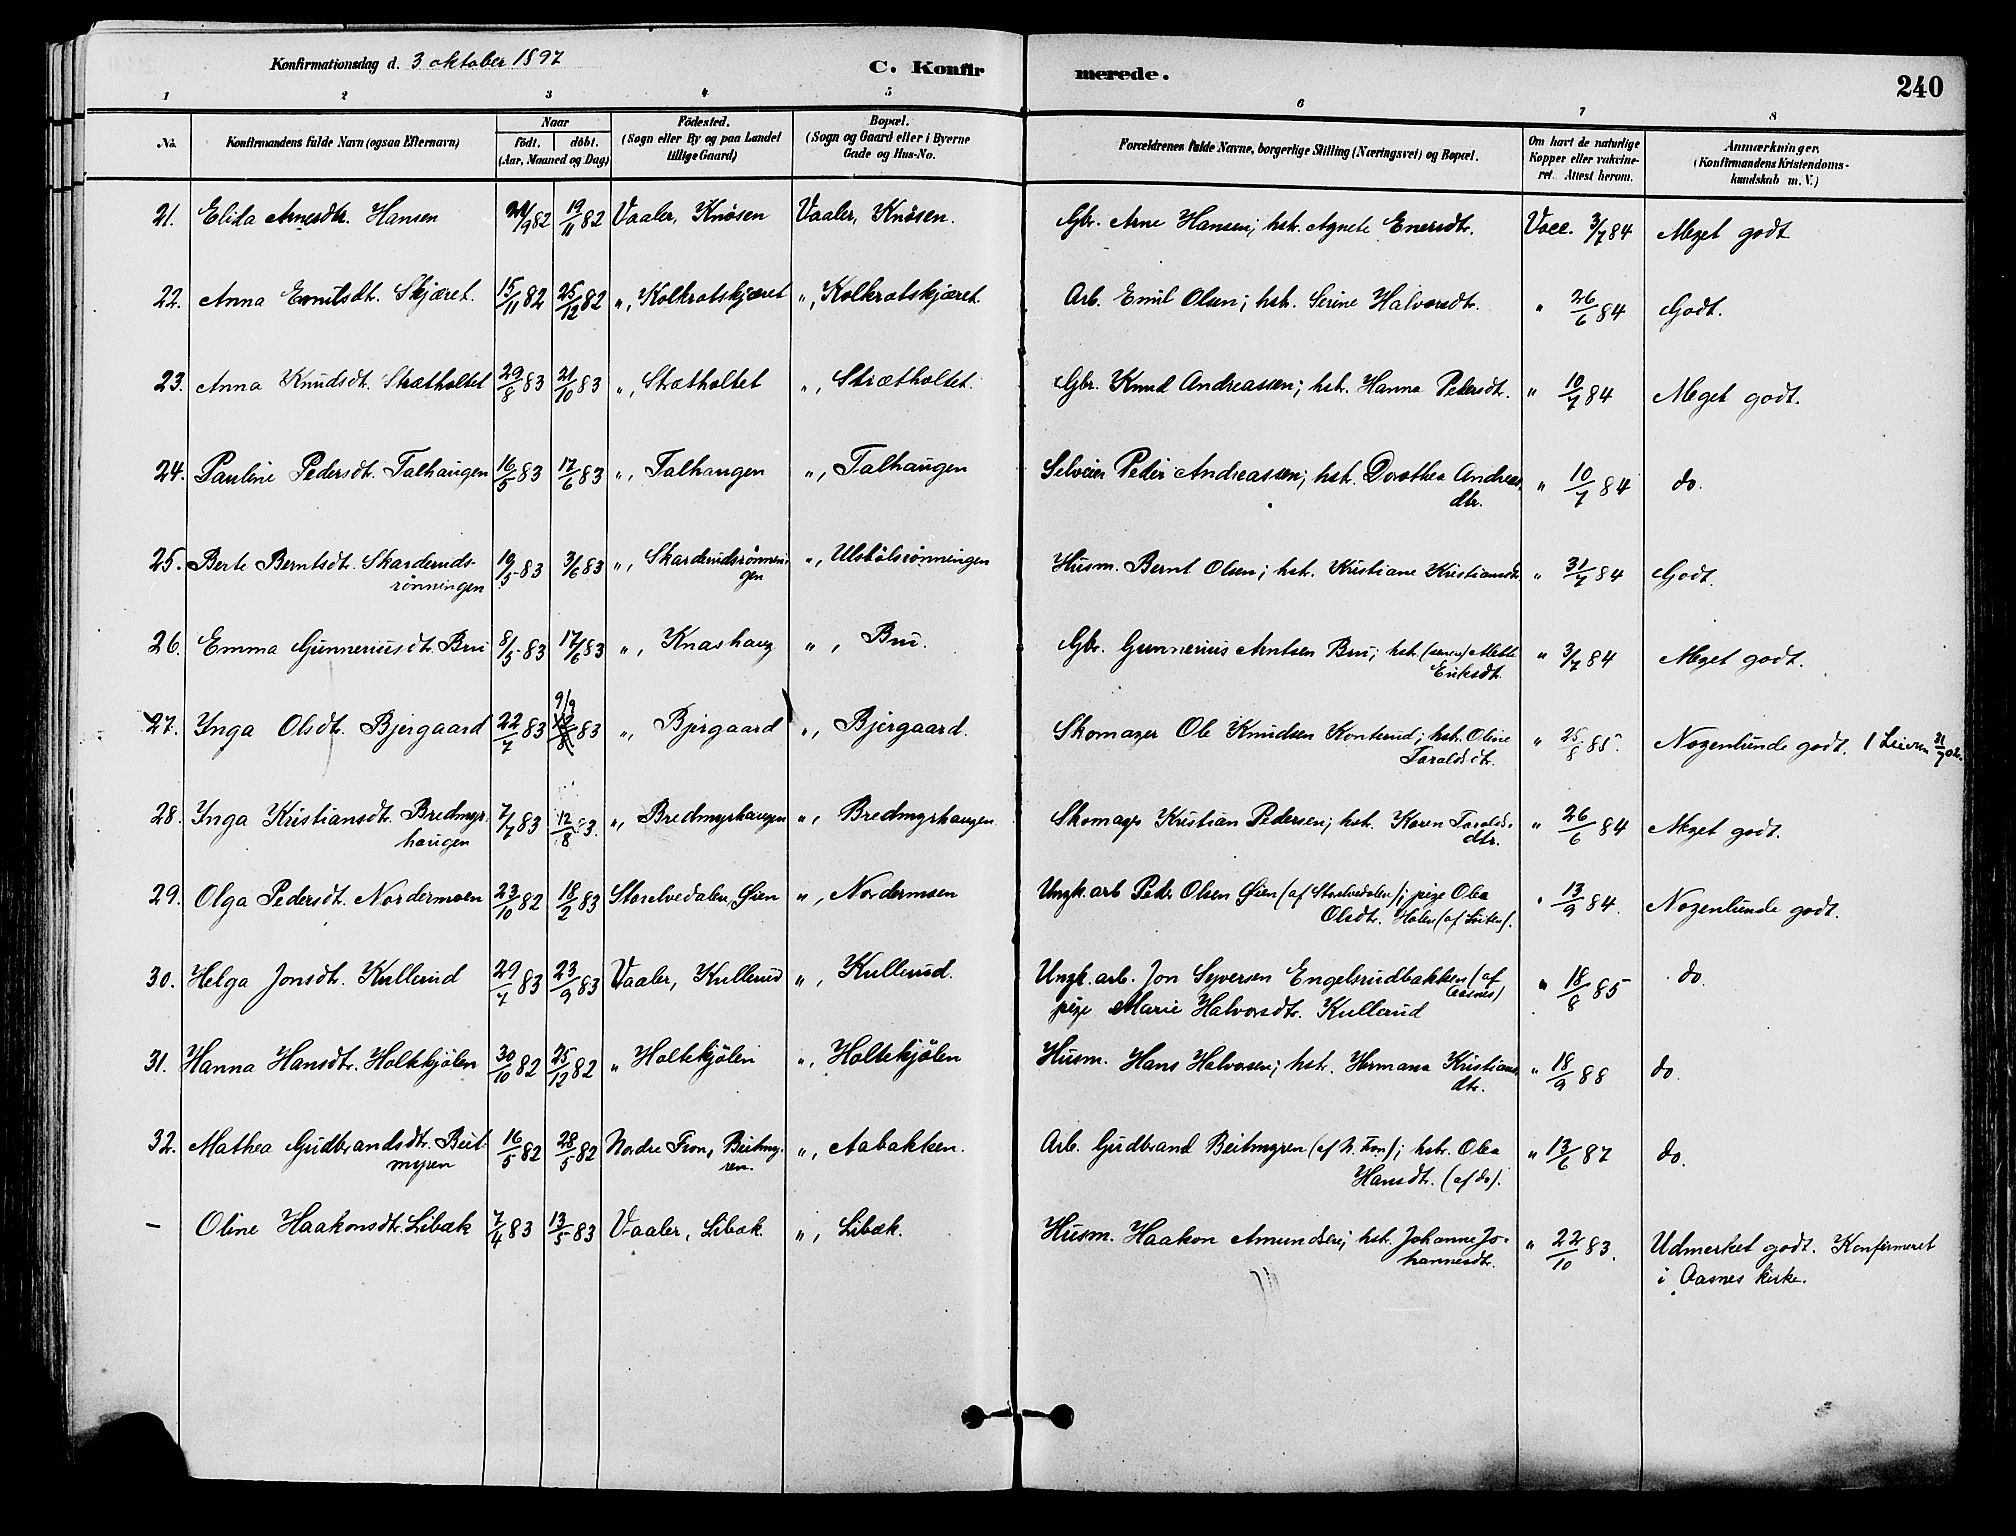 Konfirmationsdag d. 3 oktober 1897
C. Konfir merede. 240
1 2 3 4 5 6 7 8
No. Konfirmandens fulde Navn (ogsaa Efternavn) Naar födt. döbt. (Aar, Maaned og Dag) Födested. (Sogn eller By og paa Landet tillige Gaard) Bopæl. (Sogn og Gaard eller i Byerne Gade og Hus-No. Forældrenes fulde Navne, borgerlige Stilling (Næringsvei) og Bopæl. Om havt de naturlige Kopper eller vakcineret. Attest herom. Anmærkninger. (Konfirmandens Kristendomskundskab m. V.)
21. Elida Arnesdtr. Hansen /9 82 19/11 82 Vaaler, Knösen Vaaler, Knösen. Gbr. Arne Hansen; hstr. Agnete Enersdtr. Vacc. 3/7 84 Meget godt
22. Anna Emilsdt. Skjæret. 15/11 82 25/12 82 „, Kolkrotskjæret „, Kolkrotskjæret. Arb. Emil Olsen; hstr. Serine Halvorsdtr. " 26/6 84 Godt.
23. Anna Knudsdt. Strætholtet 29/8 83 21/10 83 „, Strætholtet „, Strætholtet. Gbr. Knud Andreassen; hstr. Hanna Pedersdtr. " 10/7 84 Meget godt.
24. Pauline Pedersdtr. Talhaugen 16/5 83 17/6 83 „, Talhaugen „, Talhaugen Selveier Peder Andreassen; hstr. Dorothea Andreas-
dtr. " 10/7 84 do.
25. Berte Berntsdt. Skarderuds-
rønningen 19/5 83 3/6 83 „, Skarderudsrønnin-
gen „, Ulstölsrønningen Husm. Bernt Olsen; hstr. Kristiane Kristiansdtr. " 31/7 84 Godt.
26. Emma Gunneriusdtr. Bru 8/5 83 17/6 83 „, Knashaug „, Bru. Gbr. Gunnerius Arntsen Bru; hstr. Mette
Eriksdt. " 3/7 84 Meget godt.
27. Ynga Olsdt. Bjergaard 22/7 83 9/9 83 „, Bjergaard „, Bjergaard. Skomager Ole Knudsen Konterud; hstr. Oline
Taraldsdtr. " 25/8 85. Nogenlunde godt.
28. Ynga Kristiansdtr. Bredmyr-
haugen 7/7 83 12/8 83. „, Bredmyrhaugen „, Bredmyrhaugen. Skomager Kristian Pedersen; hstr. Karen Taralds-
dtr. " 26/6 84 Meget godt.
29. Olga Pedersdt. Nordermoen 23/10 82 18/2 83 Storelvedalen, Øien „, Nordermoen Ungk. arb. Peder Olsen Øien (af Storelvedalen); pige Olea
Olsdtr. Holen (af Löiten). " 13/9 84. Nogenlunde godt.
30. Helga Jonsdtr. Kullerud 29/7 83 23/9 83 Vaaler, Kullerud „, Kullerud. Ungk. arb. Jon Syversen Engelsrudbakken (af Aasnes)
pige Marie Halvorsdtr. Kullerud " 18/8 85 do.
31. Hanna Hansdtr. Holtekjölen 30/10 82 25/12 82 „ Holtekjölen „, Holtekjölen Husm. Hans Halvorsen; hstr. Hermana Kristians-
dtr. " 18/9 88 do.
32. Mathea Gudbrandsdtr. Beit-
myren 16/5 82 28/5 82 Nordre Fron, Beitmy-
ren. „, Aabakken. Arb. Gudbrand Beitmyren (af N. Fron); hstr. Olea
Hansdtr. (af do). " 13/6 87 do.
— Oline Haakonsdtr. Libæk 7/4 83 13/5 83 Vaaler, Libæk. „, Libæk. Husm. Haakon Amundsen; hstr. Johanne Jo-
hannesdtr. " 22/10 83. Udmerket godt. Konfirmeret
i Aasnes kirke.